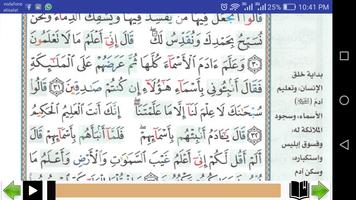 vodafone
etisalat
25%
58%
10:41 PM
قَالُوٓا۟ أَتَجْعَلُ فِيهَا مَن يُفْسِدُ فِيهَا وَيَسْفِكُ ٱلدِّمَآءَ وَنَحْنُ
نُسَبِّحُ بِحَمْدِكَ وَنُقَدِّسُ لَكَ قَالَ إِنِّىٓ أَعْلَمُ مَا لَا تَعْلَمُونَ
٣٠ وَعَلَّمَ ءَادَمَ ٱلْأَسْمَآءَ كُلَّهَا ثُمَّ عَرَضَهُمْ عَلَى ٱلْمَلَٰٓئِكَةِ
فَقَالَ أَنۢبِـُٔونِى بِأَسْمَآءِ هَٰٓؤُلَآءِ إِن كُنتُمْ صَٰدِقِينَ ٣١ قَالُوا۟
سُبْحَٰنَكَ لَا عِلْمَ لَنَآ إِلَّا مَا عَلَّمْتَنَآ إِنَّكَ أَنتَ ٱلْعَلِيمُ ٱلْحَكِيمُ
٣٢ قَالَ يَٰٓـَٔادَمُ أَنۢبِئْهُم بِأَسْمَآئِهِمْ فَلَمَّآ أَنۢبَأَهُم بِأَسْمَآئِهِمْ قَالَ
أَلَمْ أَقُل لَّكُمْ إِنِّىٓ أَعْلَمُ غَيْبَ ٱلسَّمَٰوَٰتِ وَٱلْأَرْضِ وَأَعْلَمُ مَا
بداية خلق
الإنسان، وتعليم
آدم (عليه السلام)
الأسماء، وسجود
الملائكة له،
وفسوق إبليس
واستكباره،
وسكن آدم